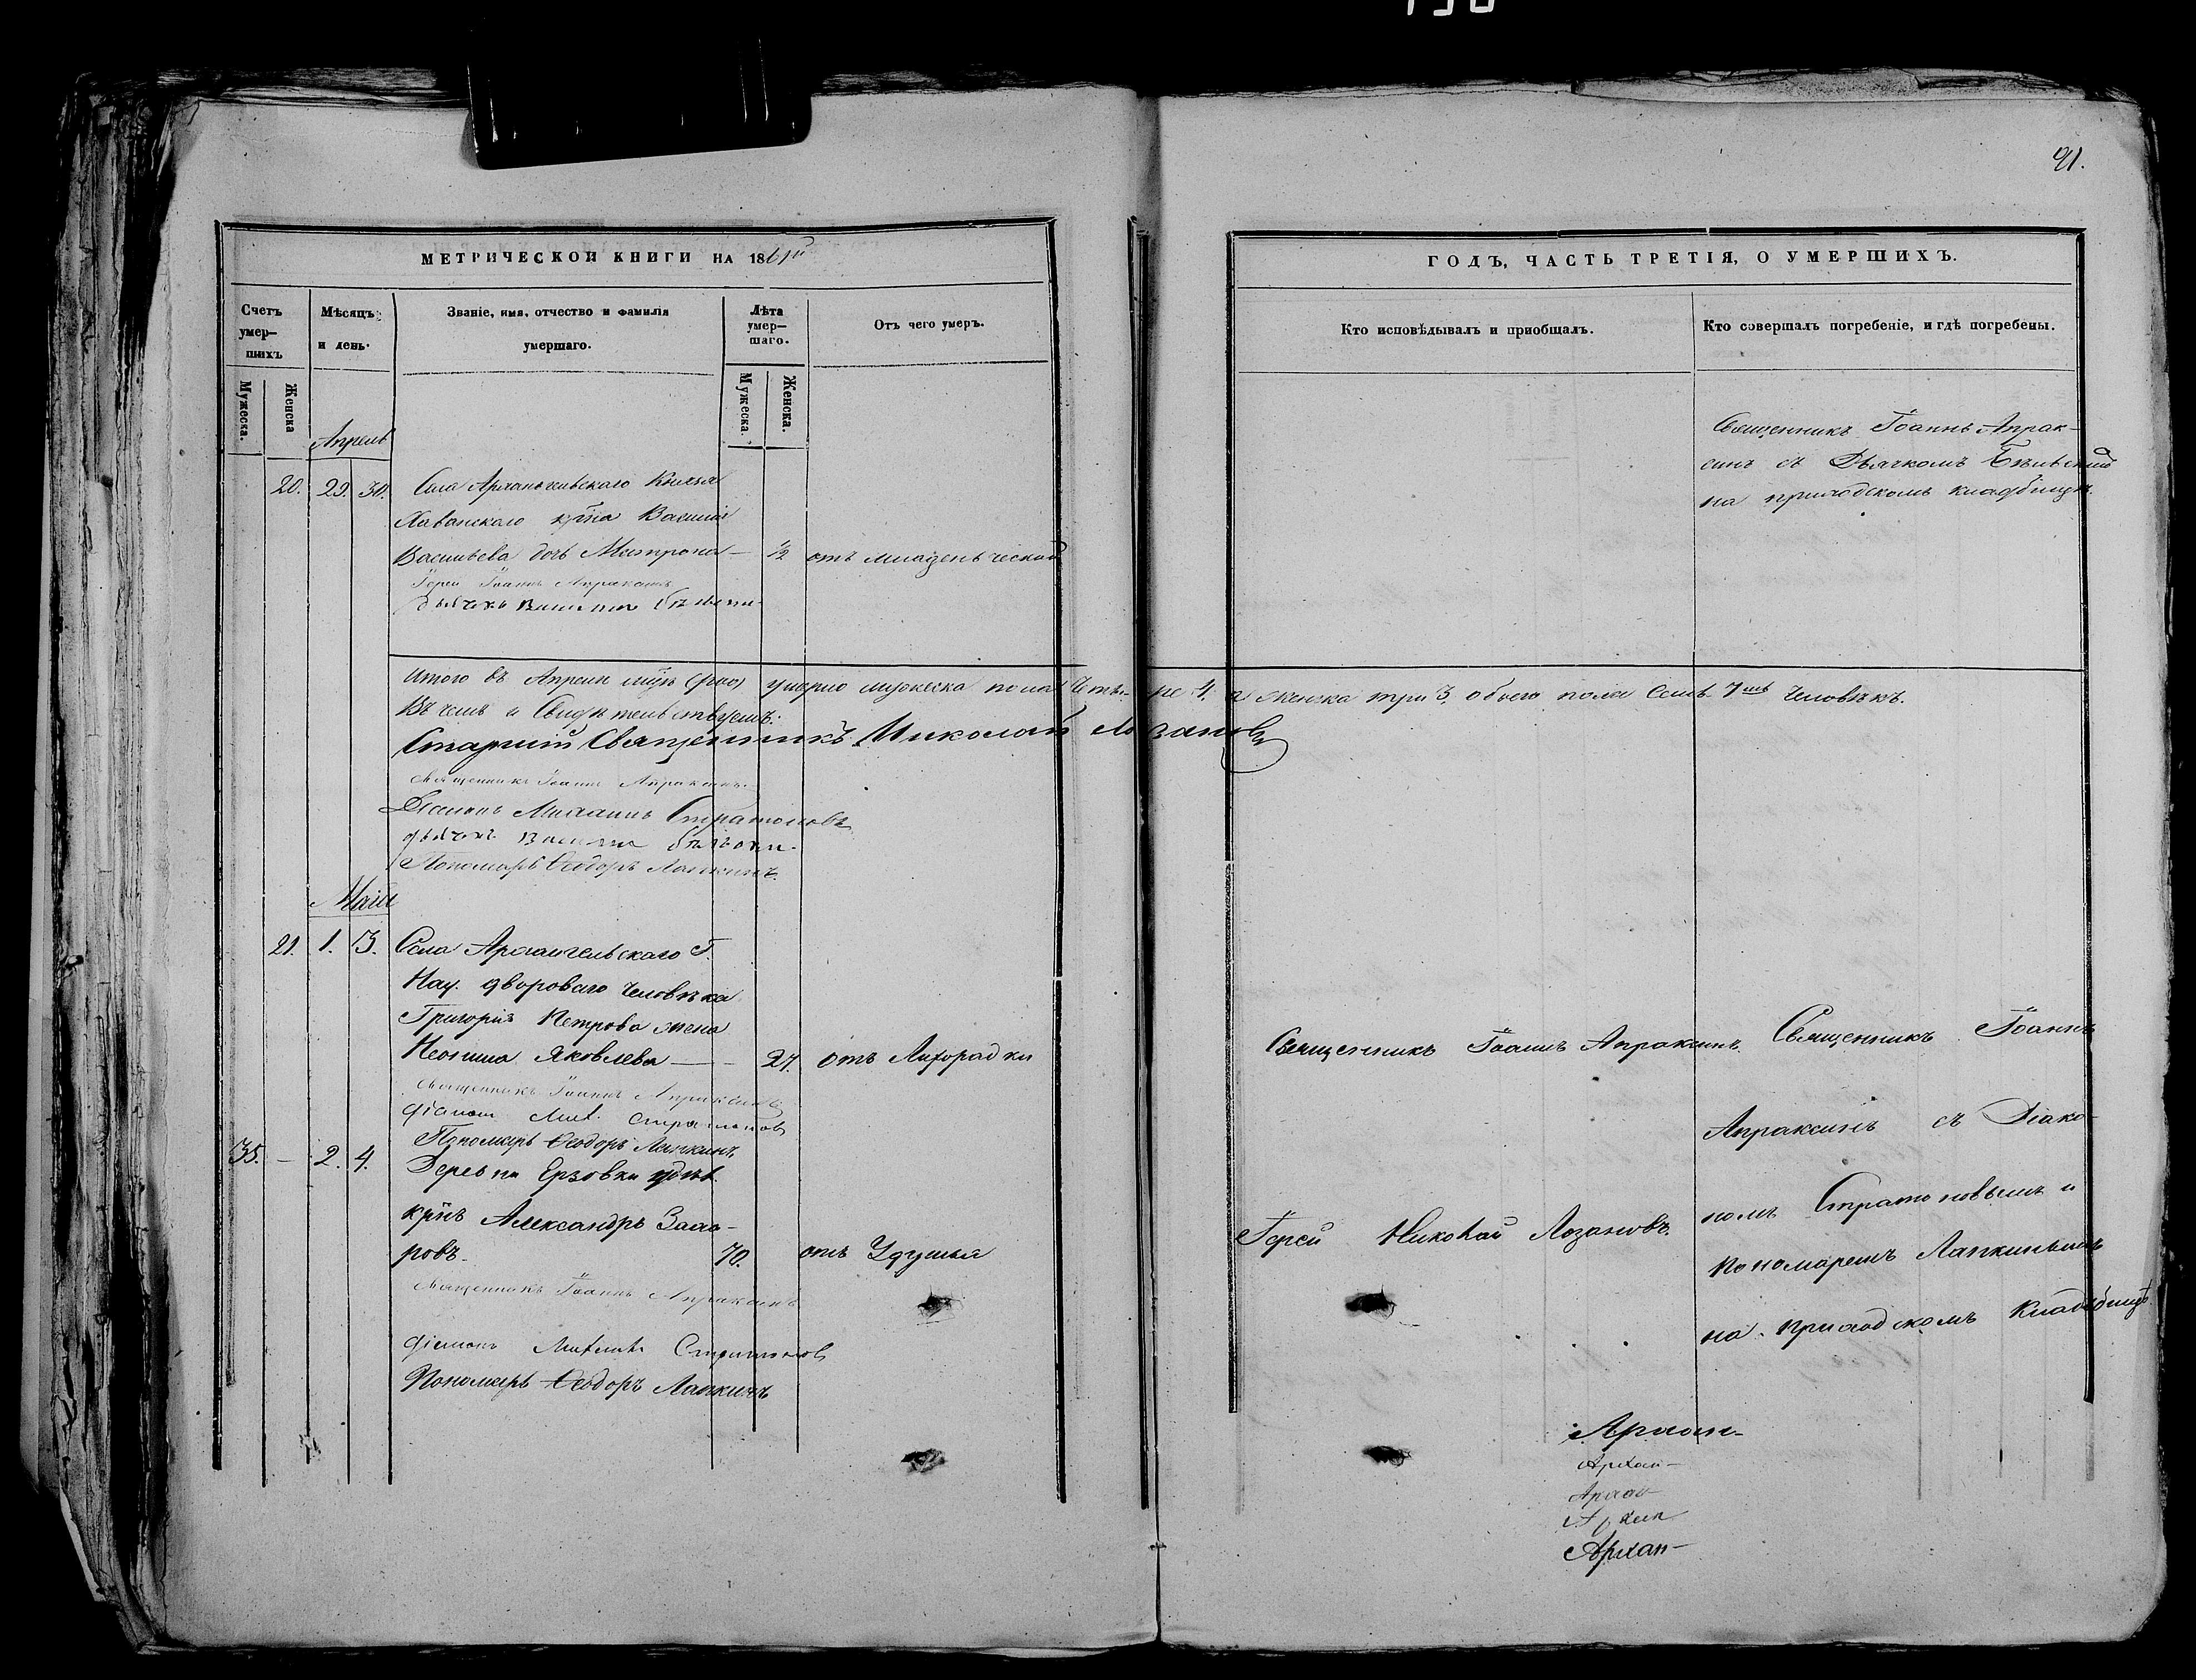 91.
МЕТРИЧЕСКОЙ КНИГИ НА 1861й
ГОДЪ, ЧАСТЬ ТРЕТІЯ, О УМЕРШИХЪ.
Счетъ умер-шихъ
Мужеска.
Женска
Мѣсяцъ и день.
Званіе, имя, отчество и фамилія умершаго.
Лѣта умер-шаго.
Мужеска.
Женска.
Отъ чего умеръ.
Кто исповѣдывалъ и приобщалъ.
Кто совершалъ погребеніе, и гдѣ погребены.
Апрель
20. 29. 30. Села Архангельскаго
Хованскаго кр̃на Василія
Васильева дочь Матрона — ½ отъ младенческой
Іерей Іоаннъ Апраксинъ
дьячекъ
Священникъ Іоаннъ Апрак-
синъ съ Дьячкомъ
на приходскомъ кладбищѣ.
Итого въ Апрелѣ умерло мужеска пола четы-ре 4, а женска три 3, обоего пола семь 7мь человѣкъ.
Въ чемъ и свидѣтельствуемъ:
Старшій Священникъ Николай Лозановъ
Священникъ Іоаннъ Апраксинъ.
Діаконъ Михаилъ Стратоновъ
дьячекъ
Пономарь Ѳеодоръ Лапкинъ.
Маій
21. 1. 3. Села Архангельскаго Г.
Нау. двороваго человѣка
Григорія Петрова жена
Яковлева — 27. отъ Лихорадки
Священникъ Іоаннъ Апраксинъ
діаконъ Мих. Стратоновъ
Пономарь Ѳеодоръ Лапкинъ
Священникъ Іоаннъ Апраксинъ.
35. — 2. 4. Деревни Ерзовки
кр̃нъ Александръ Заха-
ровъ 70. отъ Удушья
Священникъ Іоаннъ Апраксинъ
діаконъ Михаилъ Стратоновъ
Пономарь Ѳеодоръ Лапкинъ
Іерей Николай Лозановъ.
Священникъ Іоаннъ
Апраксинъ съ Діако-
номъ Стратоновымъ и
пономаремъ Лапкинымъ
на приходскомъ кладбищѣ.
Архан-
Архан-
Архан
Архан
Архан-